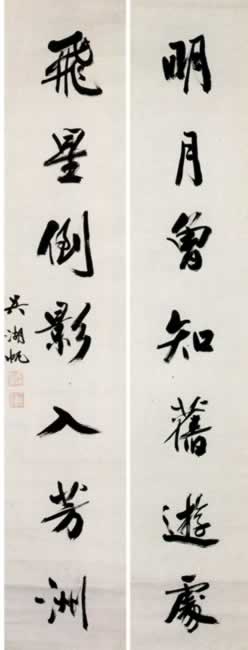 明月曾知舊遊處
飛星倒影入芳洲
吳湖帆